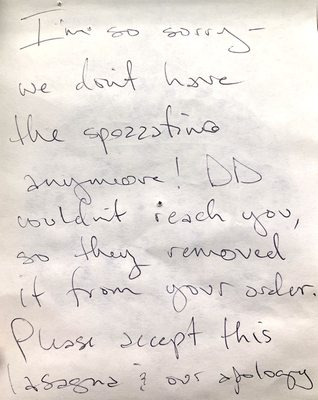 I'm so sorry -
we don't have
the spozzatino
anymore! DD
couldn't reach you,
so they removed
it from your order.
Please accept this
lasagna & our apology